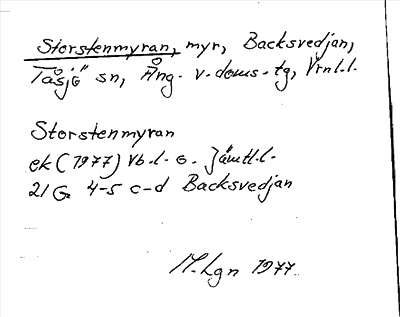 Storstenmyran, myr, Backsvedjan,
Tåsjö sn, Ång. v. doms. tg, Vrnl.l.
Storstenmyran
ek (1977) Vb.l. o. Jämtl.l.
21 G 4-5 c-d Backsvedjan
M. Lgn 1977.